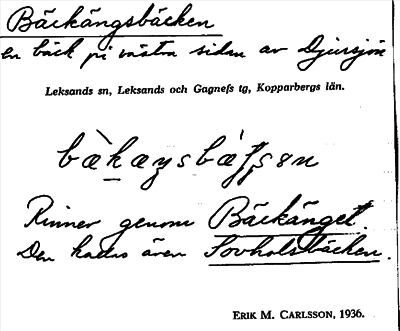 Bäckängsbäcken
en bäck på västra sidan av Djursjön
Leksands sn, Leksands och Gagnefs tg, Kopparbergs län.
Rinner genom Bäckänget.
Den kallas även Sovholsbäcken.
ERIK M. CARLSSON, 1936.